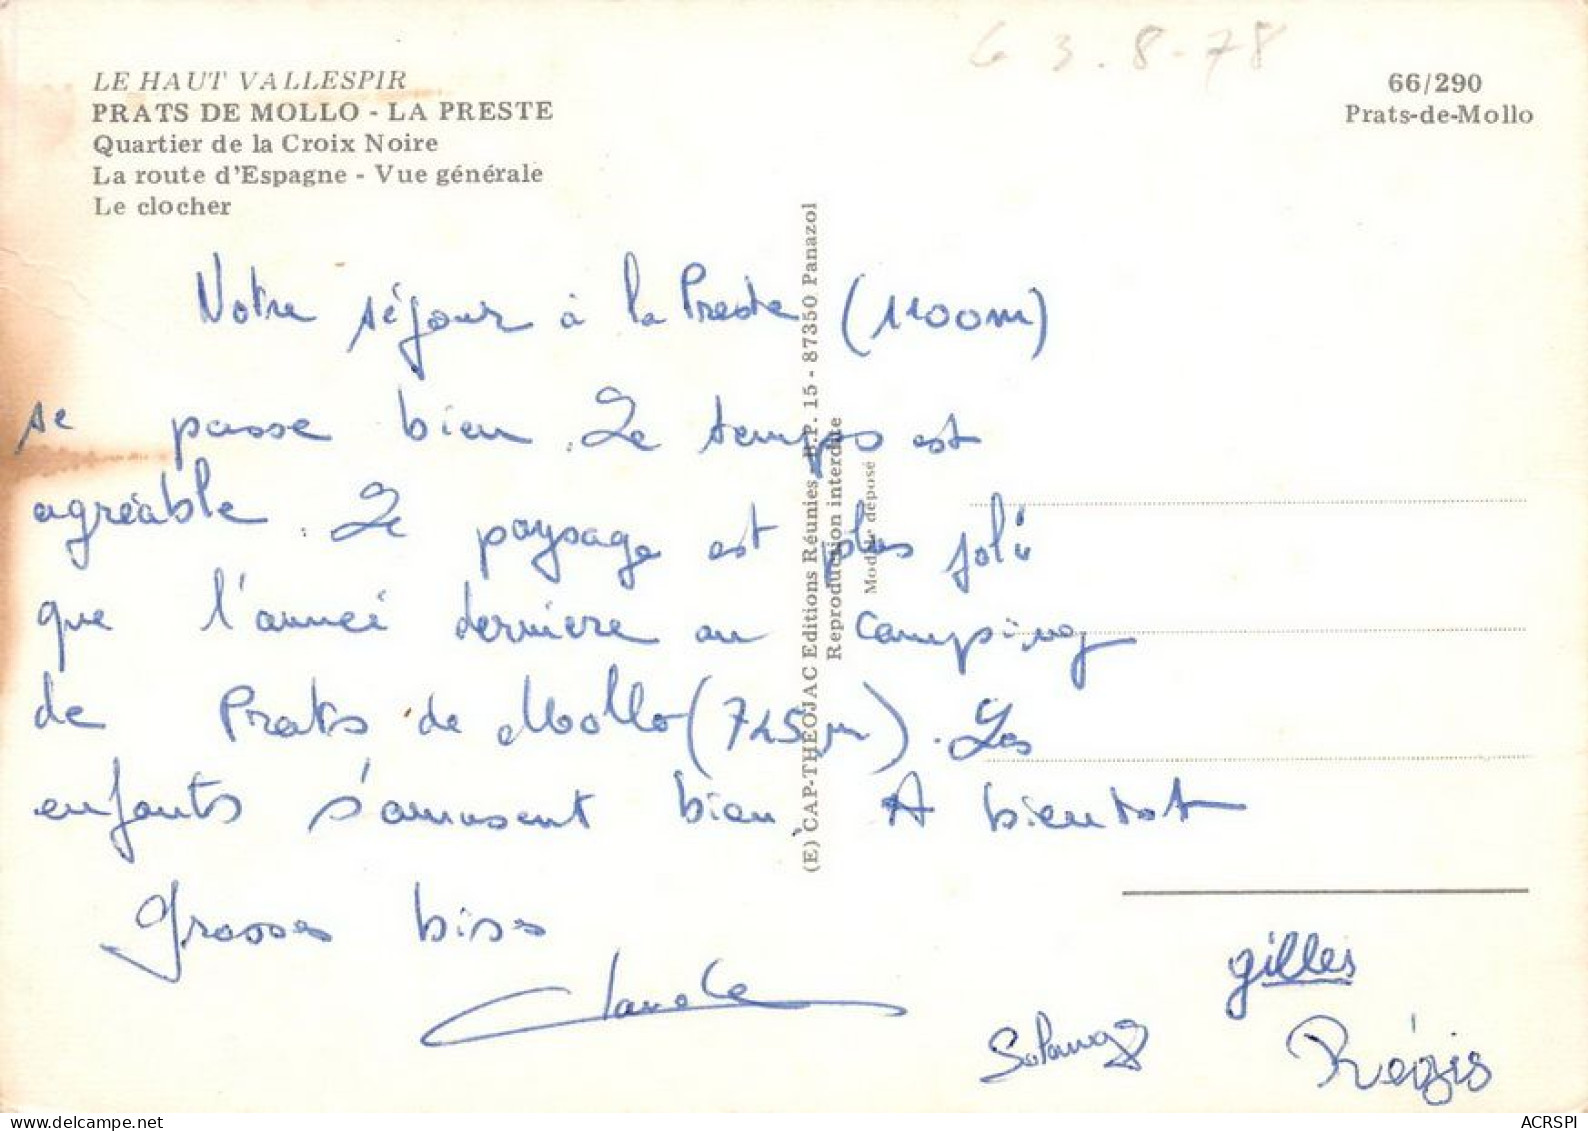 3.8-78
LE HAUT VALLESPIR
PRATS DE MOLLO - LA PRESTE
Quartier de la Croix Noire
La route d'Espagne - Vue générale
Le clocher
66/290
Prats-de-Mollo
Notre séjour à la Preste (1100m)
se passe bien. Le temps est
agréable. Le paysage est plus joli
que l'année derniere au camping
de Prats de Mollo (745m). Les
enfants s'amusent bien. A bientot
Grosses bises
Claude
gilles
Solange
Régis
(E) CAP-THEOJAC Editions Réunies - B.P. 15 - 87350 Panazol
Reproduction interdite
Modèle déposé
ACRSPI